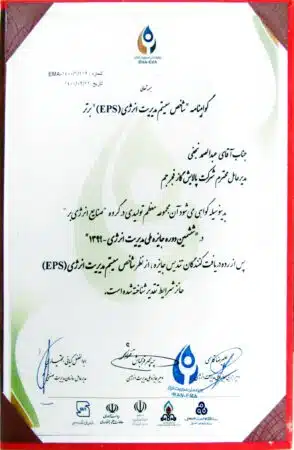 IRAN-EMA
شماره: EMA-۱۴۰۰/۲/۱۲۰۹
بسمه تعالی
گواهینامه "شاخص سیستم مدیریت انرژی (EPS) برتر"
جناب آقای عبدالصمد نجفی
مدیرعامل محترم شرکت پالایش گاز فجر جم
بدینوسیله گواهی می شود آن مجموعه معظم تولیدی در گروه "صنایع انرژی بر"
در "ششمین دوره جایزه ملی مدیریت انرژی - ۱۳۹۹"
پس از رده دریافت کنندگان تندیس جایزه، از نظر شاخص سیستم مدیریت انرژی (EPS)
حائز شرایط تقدیر شناخته شده است.
IRAN-EMA